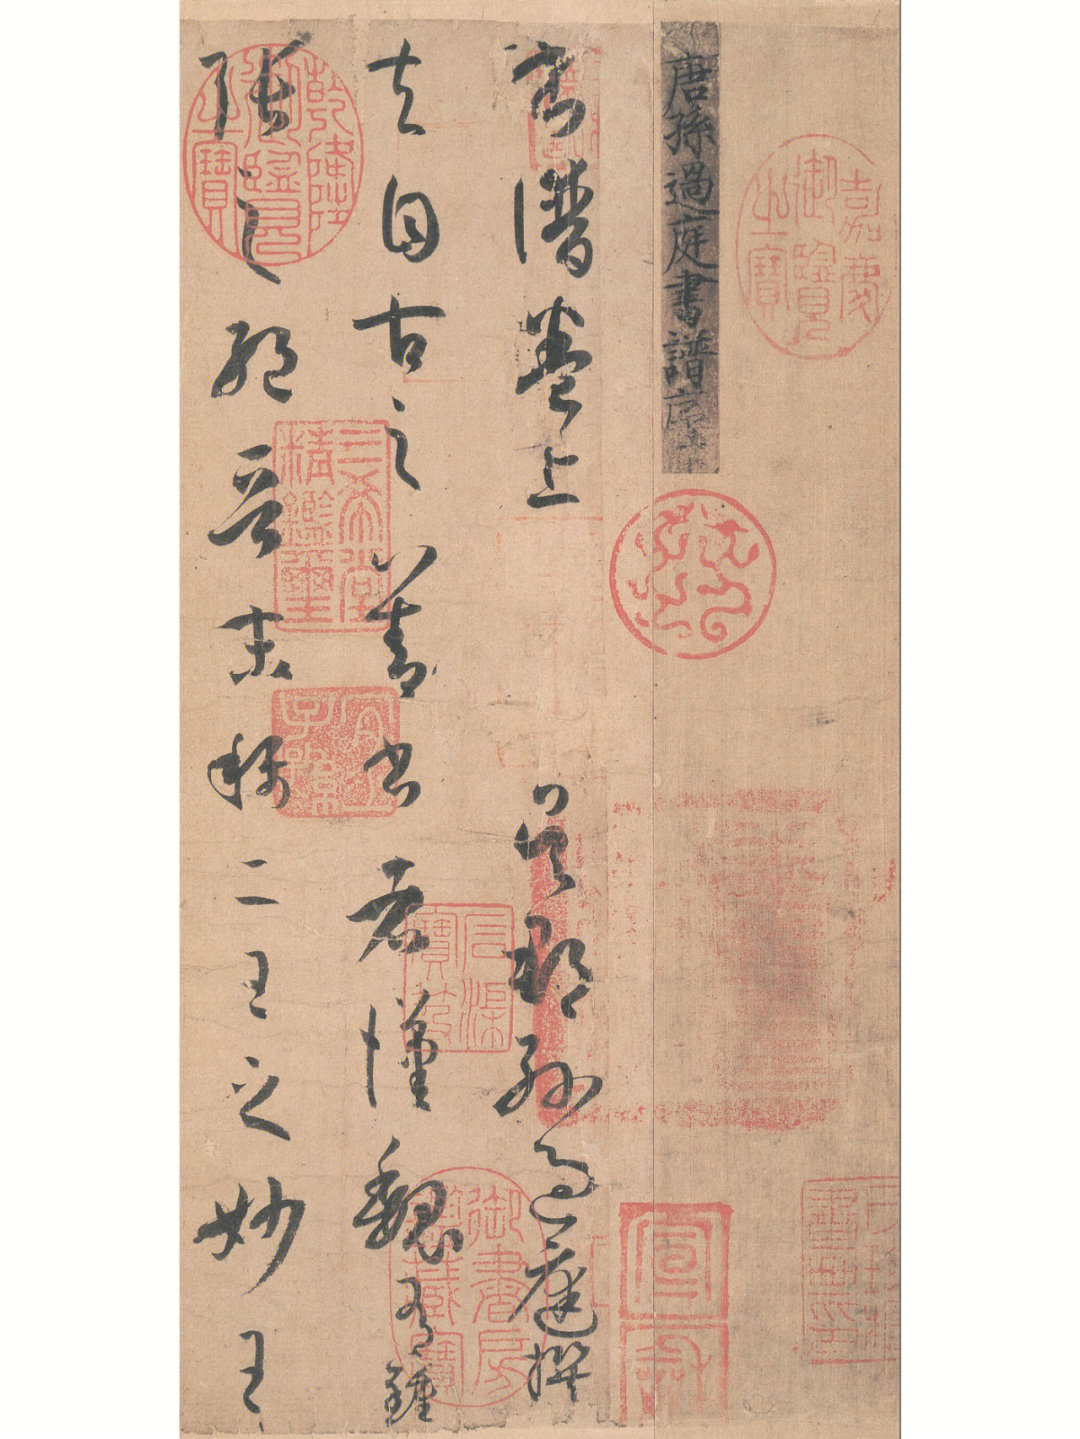 嘉慶御覽之寶
唐孫過庭書譜序上
宣和
書譜卷上 吳郡孫過庭撰
夫自古之善書者漢魏有鍾
張之絕晉末稱二王之妙王
乾隆御覽之寶
三希堂精鑑璽
宜子孫
石渠寶笈
御書房鑑藏寶